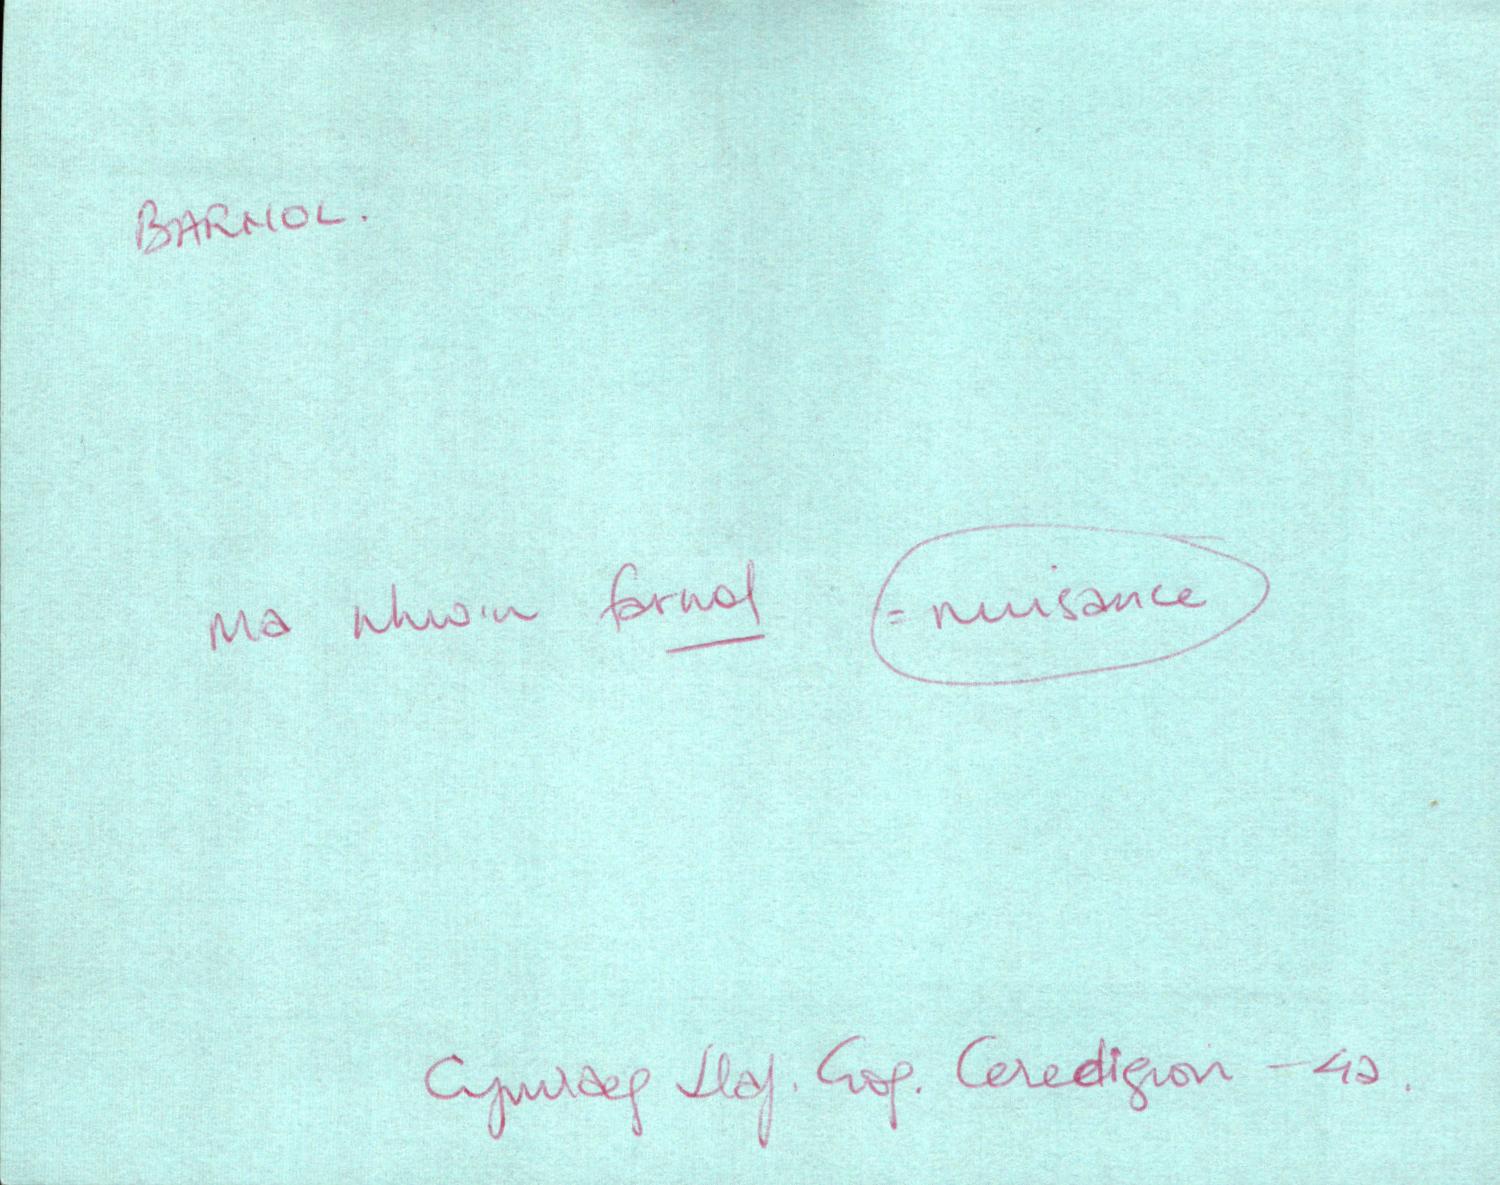 BARNOL.
Ma nhw'n farnol = nuisance
Cymraeg Llaf. Gog. Ceredigion - 42.